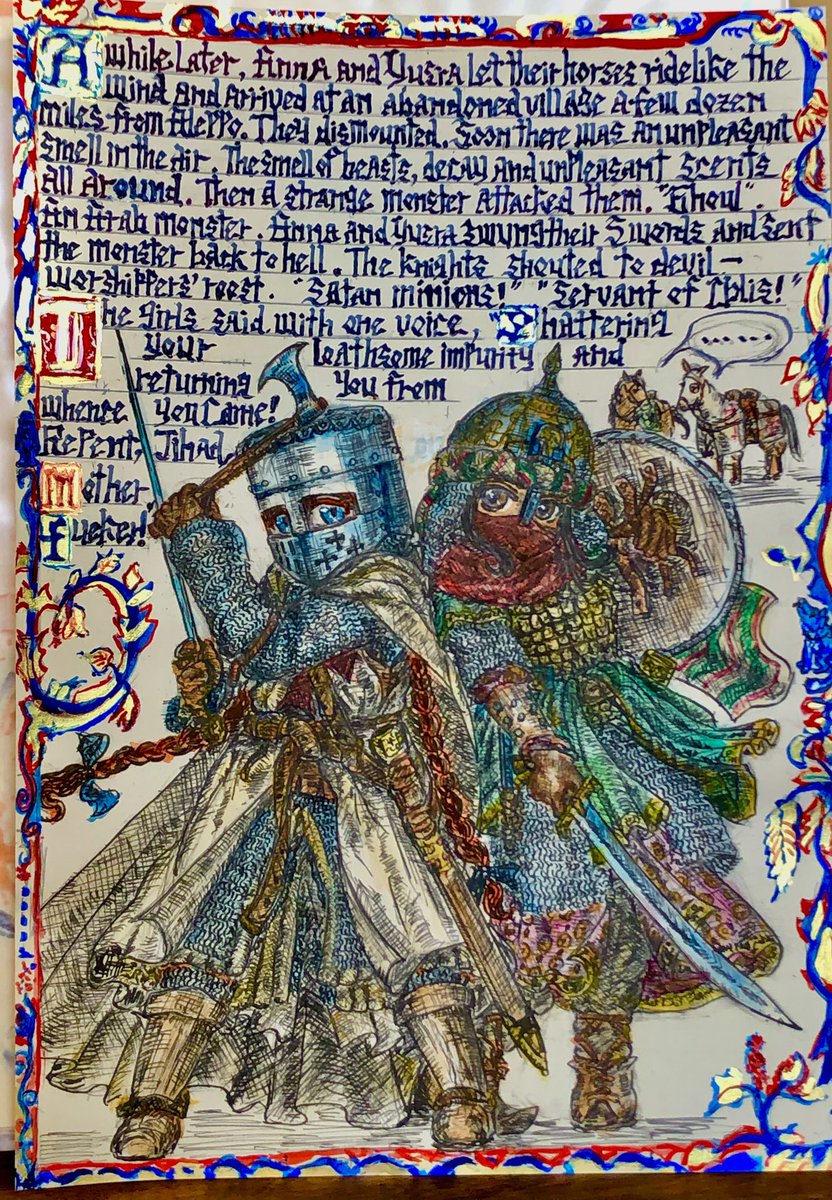 A while Later, Anna and Yusra let their horses ride like the
wind and arrived at an abandoned village a few dozen
miles from Aleppo. They dismounted. Soon there was an unpleasant
smell in the air. The smell of beasts, decay and unpleasant scents
all around. Then a strange monster attacked them. "Ghoul".
An Arab monster. Anna and Yusra swung their swords and sent
the monster back to hell. The knights shouted to devil-
worshippers' roost. "Satan minions!" "Servant of Iblis!"
The girls said with one voice, "Shattering
your loathsome impurity and
returning you from
whence you came!
Repent, Jihad,
mother
fucker!"
......